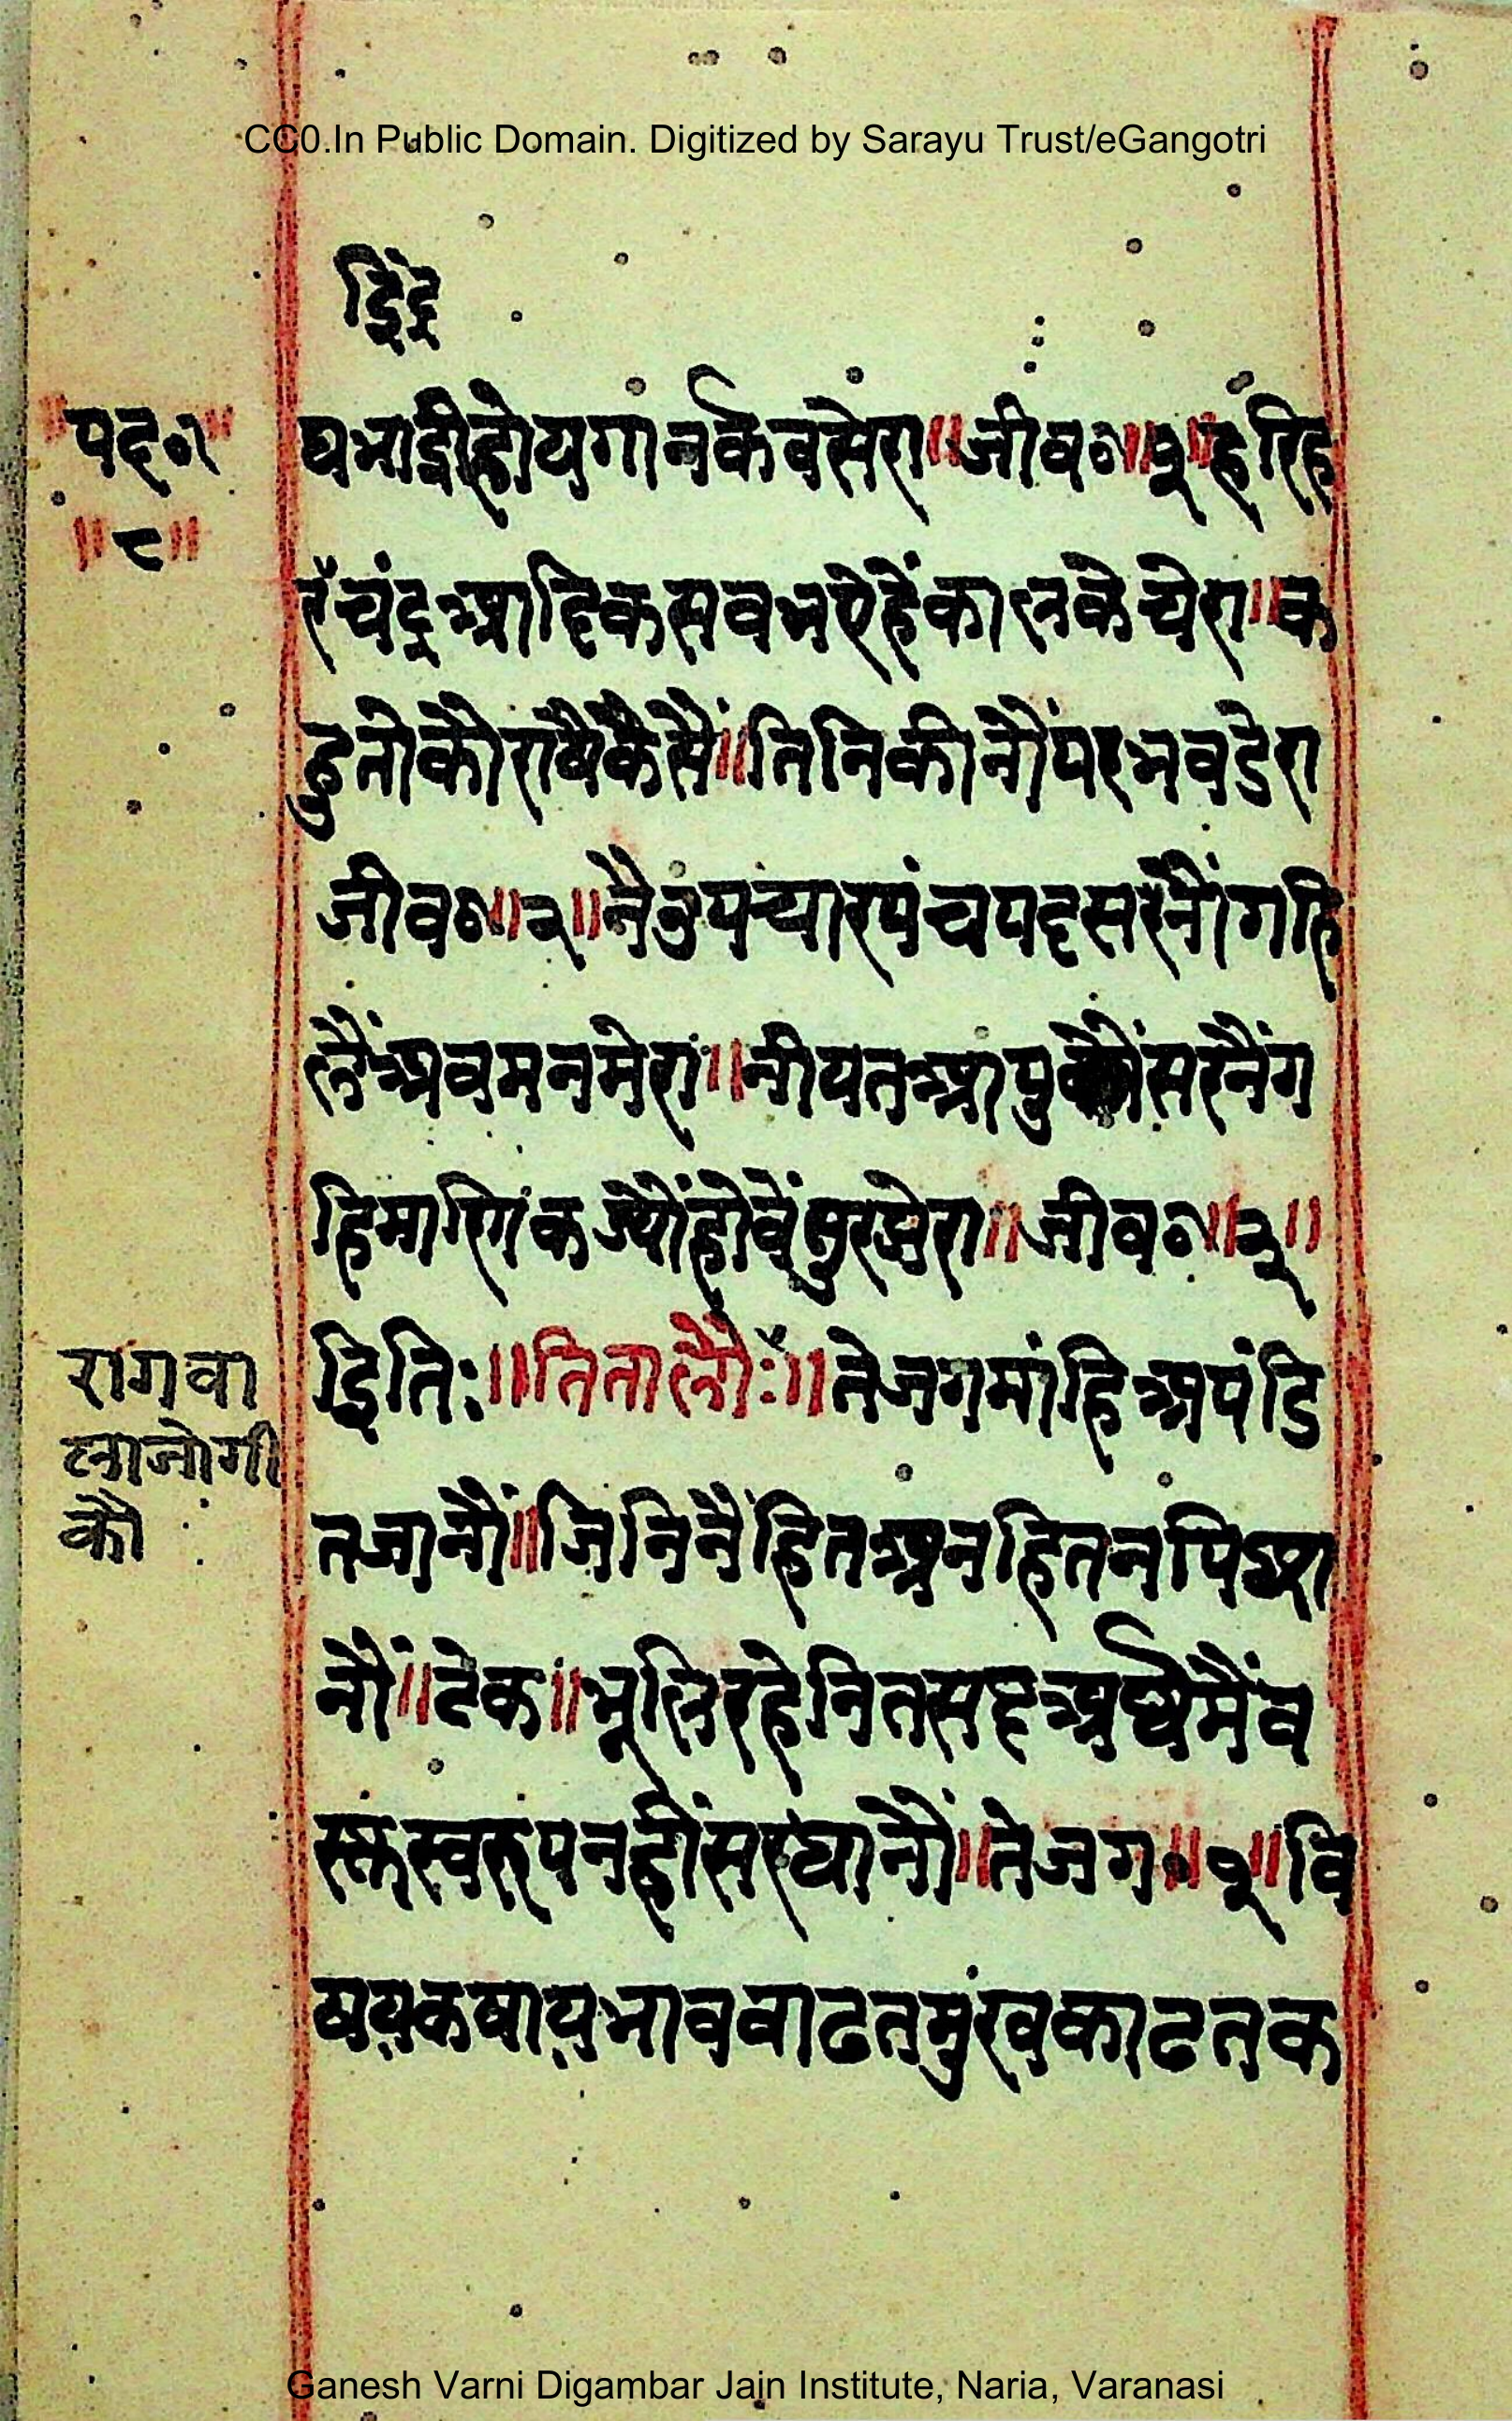 CC0.In Public Domain. Digitized by Sarayu Trust/eGangotri
इिंद्र
॥पद०॥
॥८॥
षभाद्दीहोयगानर्कवसेरा॥जीव०॥१॥हरिह
रचंद्रआदिकसवभऐहेंकालकेचेरा॥क
हुतोकौराषैकैसैं॥तिनिकीनौंपरभवडेरा
जीव०॥२॥नैनुपच्यारपंचपदसरनौंगहि
लैंअवमनमेरा॥नीयतआपुकोंसरनैंग
हिमारगिकज्योंहोवेंसुरझेरा॥जीव०॥३॥
इिति:॥तितालौ:॥तेजगमांहिअपंडि
तजानौं॥जिनिनैंहितअनहितनपिछा
नौं॥टेक॥भूलिरहेनितसदअर्थमैंव
स्तस्वरुपनहींसरधानौं॥तेजग०॥१॥वि
षयकषायभाववाढतमुंखकाढतक
रागवा
लाजोगी
कौ
Ganesh Varni Digambar Jain Institute, Naria, Varanasi